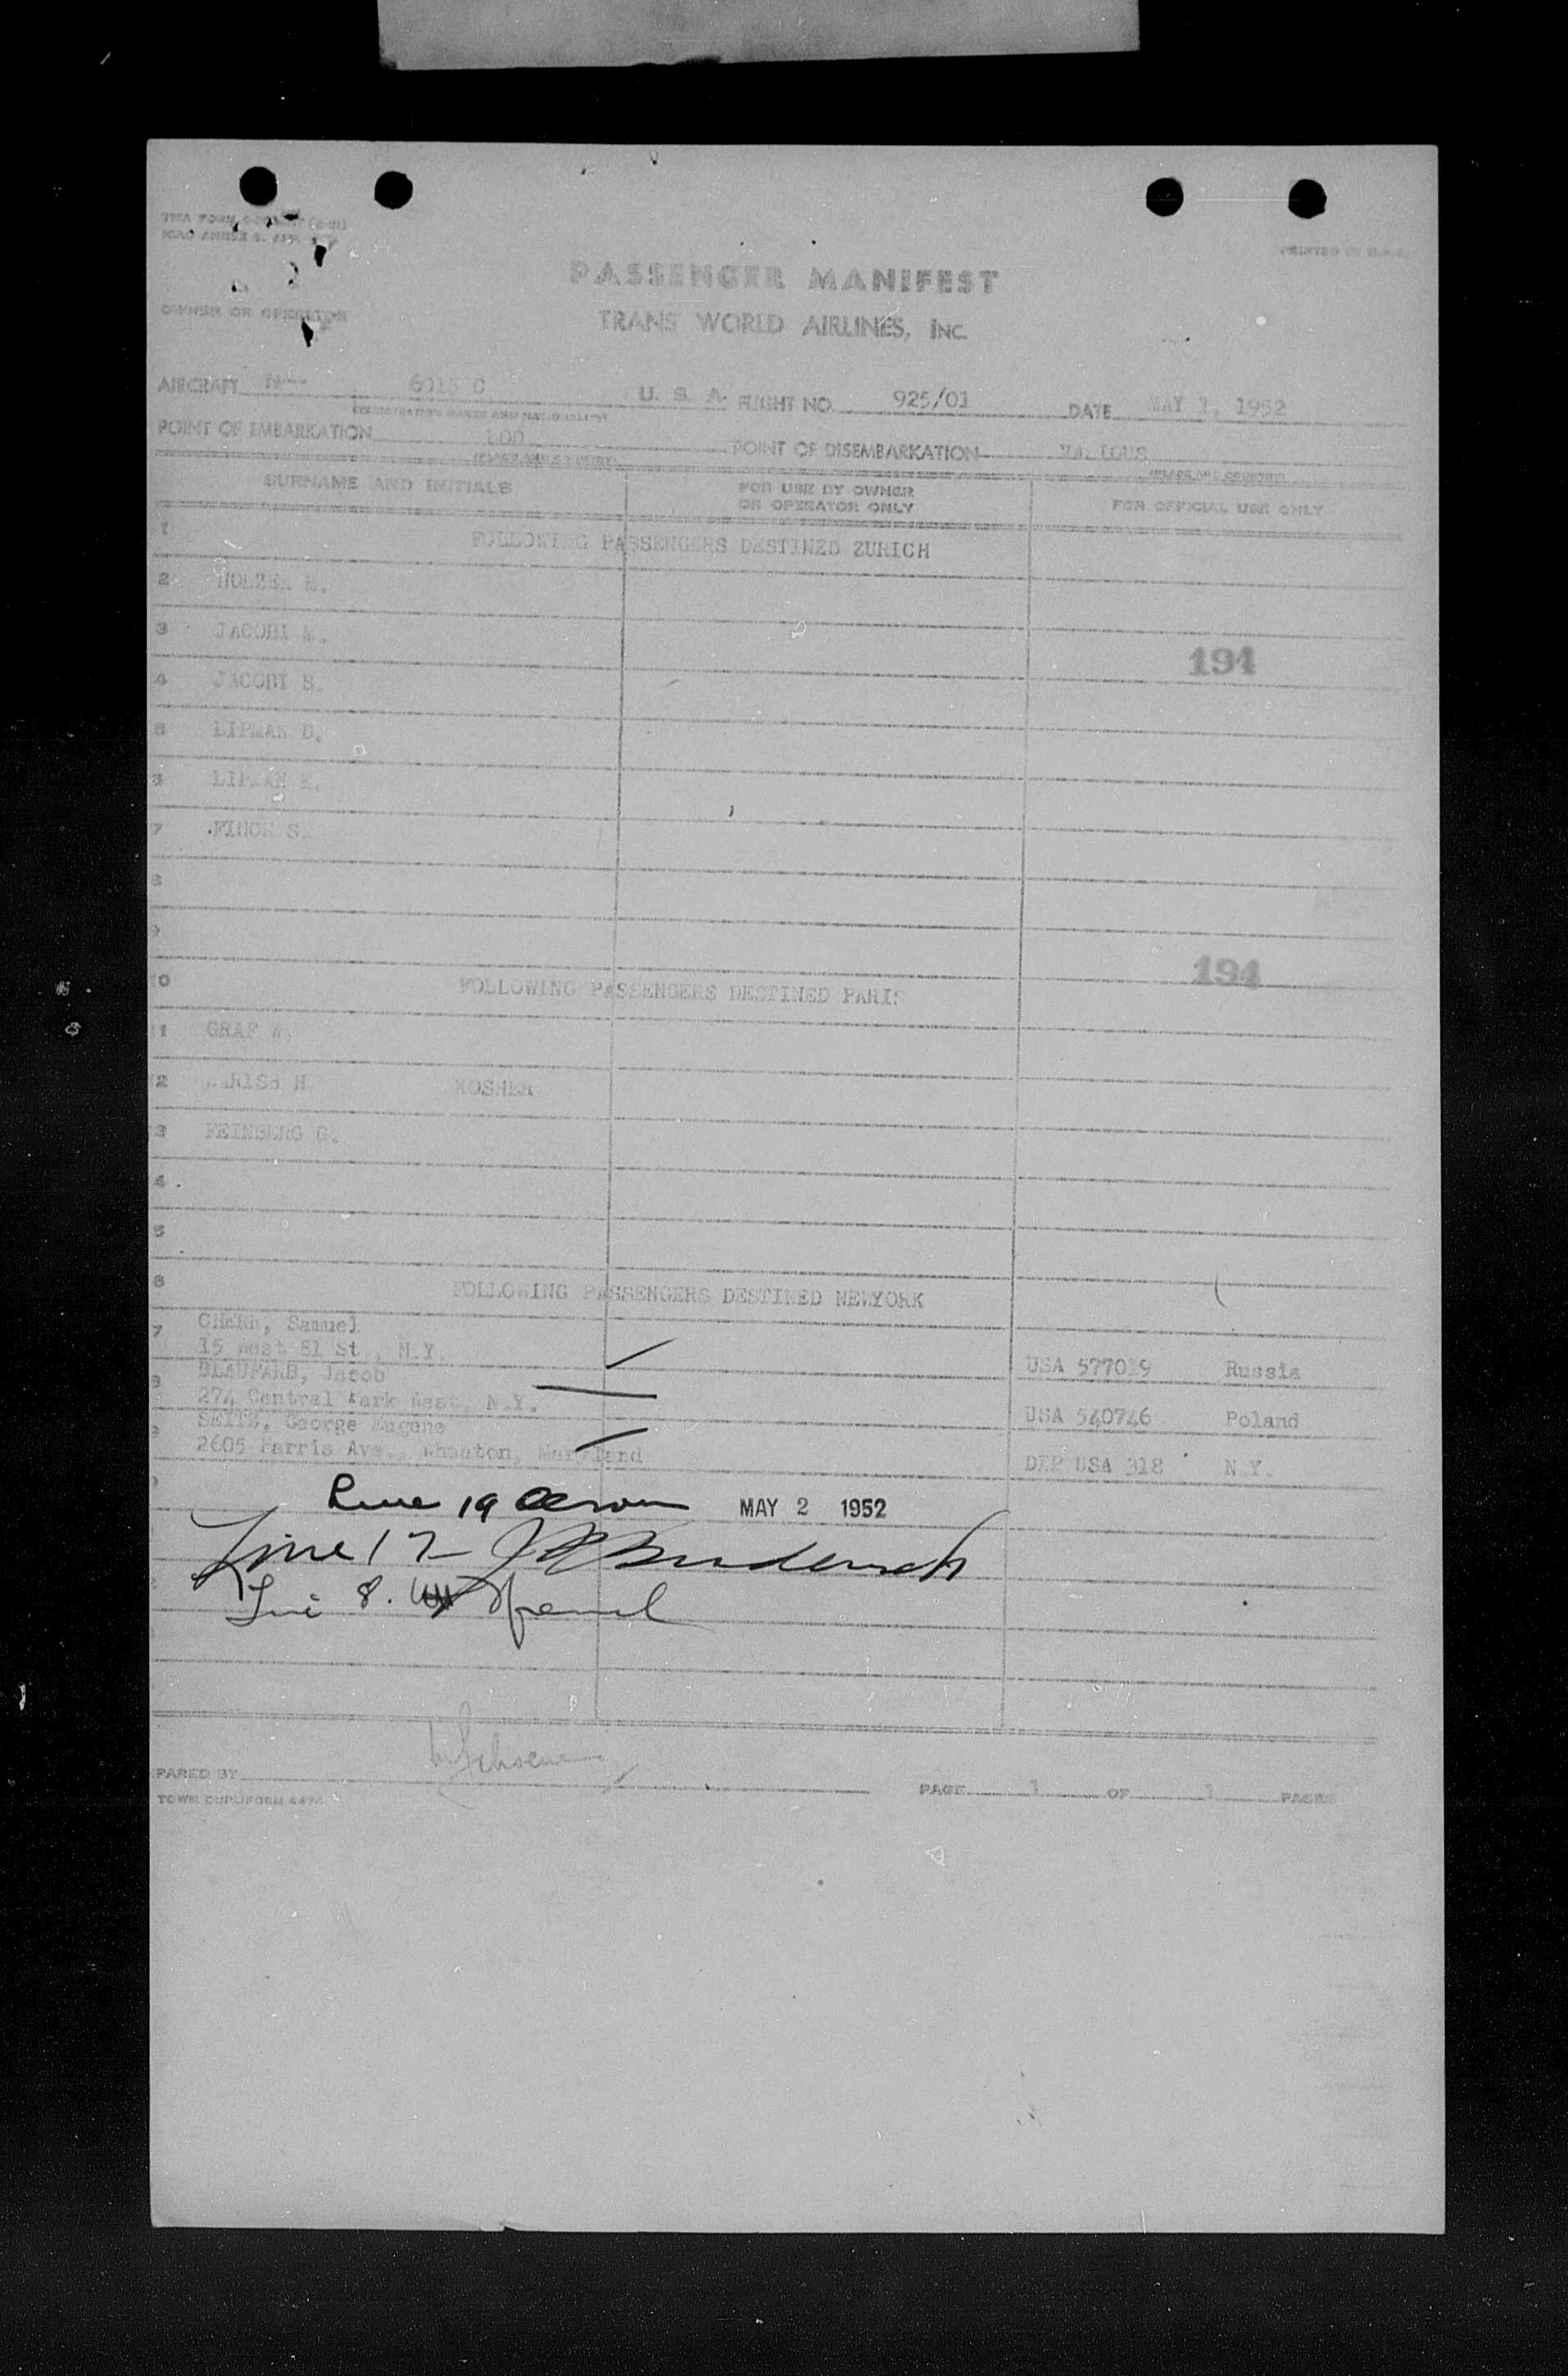 PRINTED IN U.S.A.
OWNER OR OPERATOR
PASSENGER MANIFEST
TRANS WORLD AIRLINES, INC.
AIRCRAFT N-- 6015 C U. S. A. FLIGHT NO. 925/01 DATE MAY 1, 1952
POINT OF EMBARKATION LOD POINT OF DISEMBARKATION VARIOUS
SURNAME AND INITIALS
FOR USE BY OWNER
OR OPERATOR ONLY
FOR OFFICIAL USE ONLY
1 FOLLOWING PASSENGERS DESTINED ZURICH
2 HOLZER M.
3 JACOBI M.
191
4 JACOBI S.
5 LIPMAN D.
6 LIPMAN
7 FINCH S.
8
9
191
0 FOLLOWING PASSENGERS DESTINED PARIS
1 GRAF W.
2 H. KOSHER
3 FEINBERG G.
4
5
6 FOLLOWING PASSENGERS DESTINED NEWYORK
7 Samuel
15 West 81 St., N.Y. USA 577019 Russia
8 BLAUFARB, Jacob
274 Central Park West, N.Y. USA 540746 Poland
9 SEITZ, George Eugene
2605 Harris Ave., Wheaton, Maryland DIP USA 318 N.Y.
Line 19 MAY 2 1952
Line 17
Line 8.
PARED BY PAGE 1 OF 1 PAGES